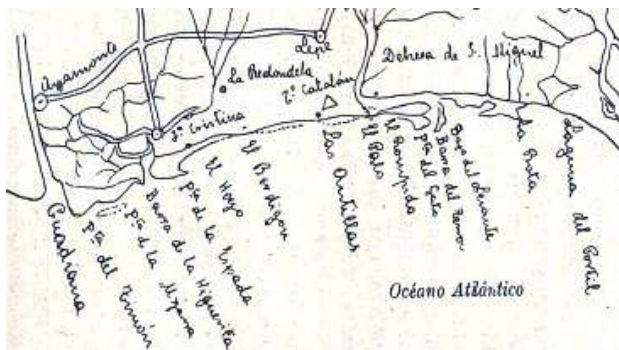 Ayamonte
Lepe
La Redondela
Tº Catalán
Dehesa de S. Miguel
Sª Cristina
Guadiana
pta del Timón
pta de la Mojarra
Barra de la Higuerita
pta de la Espada
El Hoyo
El Berdigon
Las Antillas
El Palo
El Rompido
pta del Gato
Barra del Terron
Bajo del Levante
La Bota
Laguna del Portil
Océano Atlántico